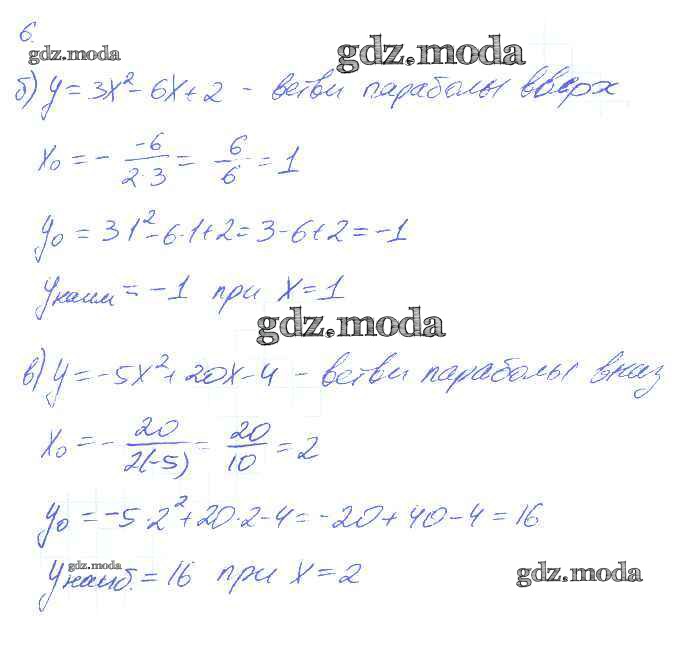 6.
gdz.moda gdz.moda
б) y = 3x² - 6x + 2 - ветви параболы вверх
x₀ = - -6/2·3 = 6/6 = 1
y₀ = 3·1² - 6·1 + 2 = 3 - 6 + 2 = -1
yнаим = -1 при x = 1
gdz.moda
в) y = -5x² + 20x - 4 - ветви параболы вниз
x₀ = - 20/2(-5) = 20/10 = 2
y₀ = -5·2² + 20·2 - 4 = -20 + 40 - 4 = 16
gdz.moda
yнаиб. = 16 при x = 2
gdz.moda